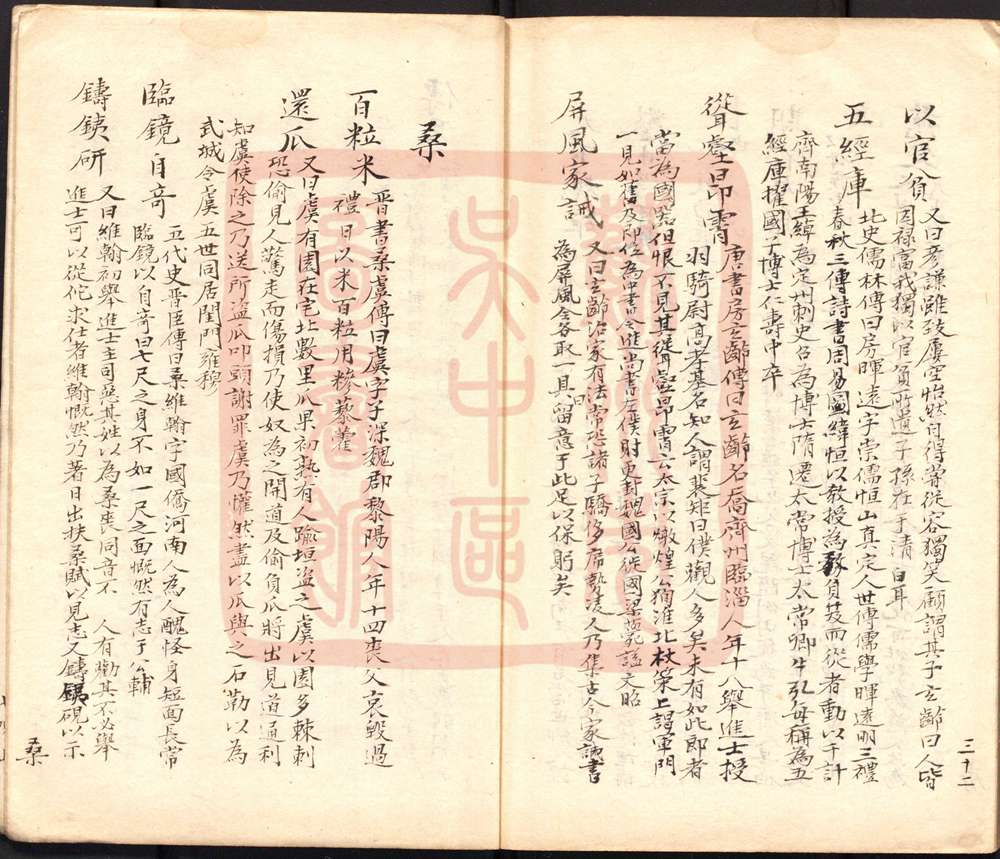 三十二
以官貧 又曰彥謙雖致屢空怡然自得嘗從容獨笑顧謂其子玄齡曰人皆
因祿富我獨以官貧所遺子孫在于清白耳
五經庫 北史儒林傳曰房暉遠字崇儒恒山真定人世傳儒學暉遠明三禮
春秋三傳詩書周易圖緯恒以教授為務負笈而從者動以千計
齊南陽王綽為定州刺史召為博士隋遷太常博士太常卿牛弘每稱為五
經庫擢國子博士仁壽中卒
聳壑昂霄 唐書房玄齡傳曰玄齡名喬齊州臨淄人年十八舉進士授
羽騎尉高孝基名知人謂裴矩曰僕觀人多矣未有如此郎者
當為國器但恨不見其聳壑昂霄云太宗以燉煌公徇淮北杖策上謁軍門
一見如舊及即位為中書令進尚書左僕射更封魏國公徙國梁薨謚文昭
屏風家誡 又曰玄齡治家有法常恐諸子驕侈席勢凌人乃集古今家誡書
為屏風令各取一具曰留意于此足以保躬矣
桑
百粒米 晉書桑虞傳曰虞字子深魏郡黎陽人年十四喪父哀毀過
禮日以米百粒用糝藜藿
還瓜 又曰虞有園在宅北數里瓜果初熟有人踰垣盜之虞以園多棘刺
恐偷見人驚走而傷損乃使奴為之開道及偷負瓜將出見道通利
知虞使除之乃送所盜瓜叩頭謝罪虞乃懽然盡以瓜與之石勒以為
武城令虞五世同居閨門雍穆
臨鏡自奇 五代史晉臣傳曰桑維翰字國僑河南人為人醜怪身短面長常
臨鏡以自奇曰七尺之身不如一尺之面慨然有志于公輔
鑄鐵研 又曰維翰初舉進士主司惡其姓以為桑喪同音不 人有勸其不必舉
進士可以從佗求仕者維翰慨然乃著日出扶桑賦以見志又鑄鐵硯以示
桑
吳中區
圖
館